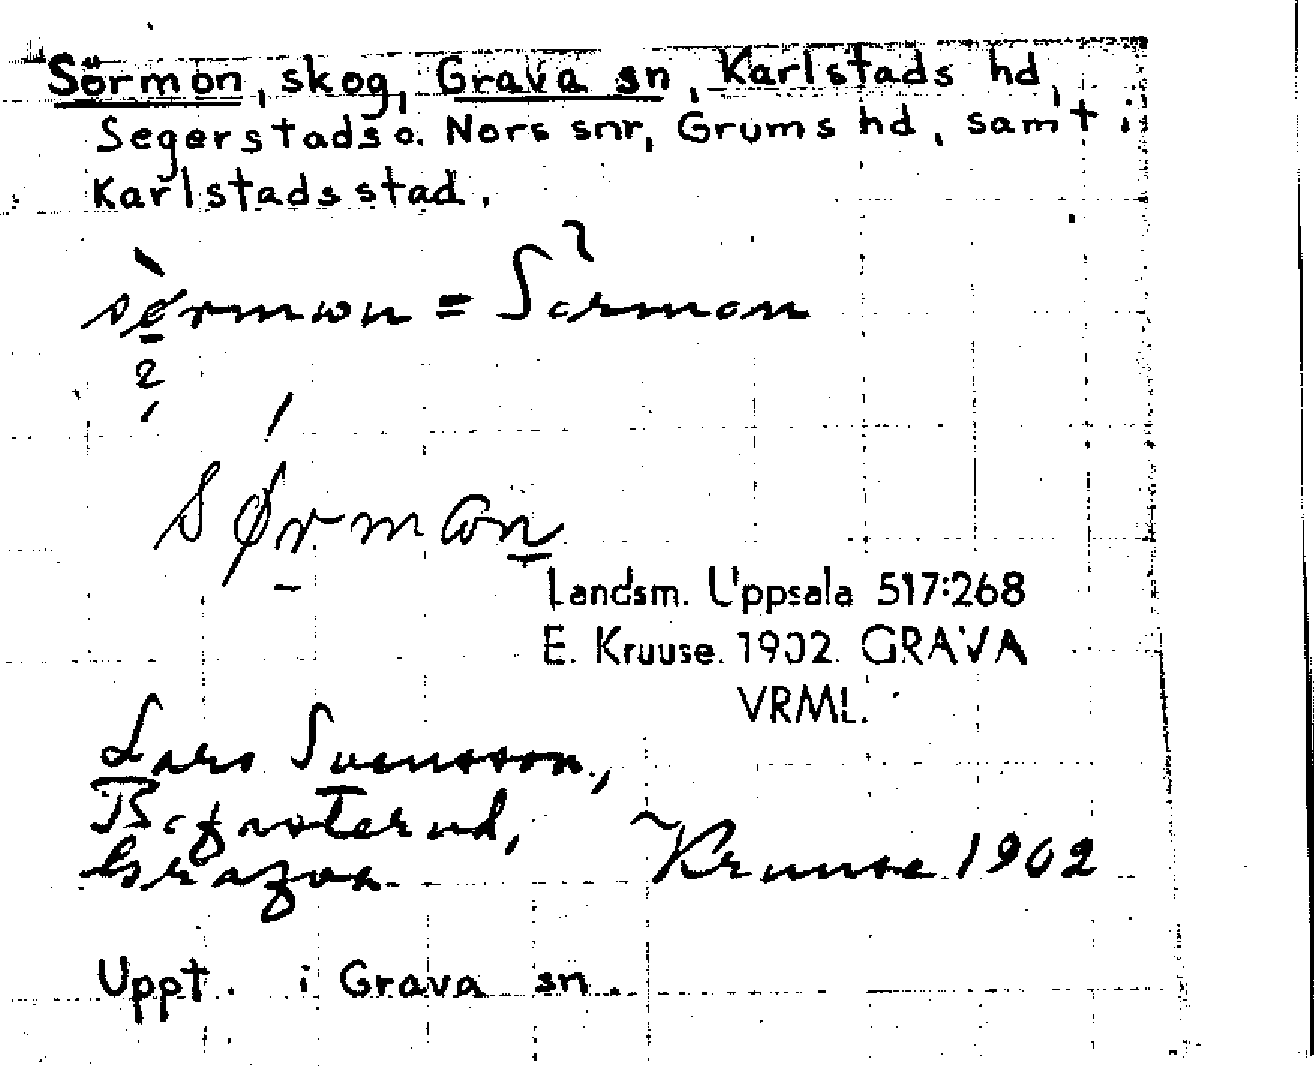 Sörmon, skog, Grava sn, Karlstads hd,
Segerstads o. Nors snr, Grums hd, samt i
Karlstads stad.
sørmon = Sörmon
2
sørmon
Landsm. Uppsala 517:268
E. Kruuse. 1902. GRAVA
VRML.
Lars Svensson,
Grafva.
Kruuse 1902
Uppt. i Grava sn.